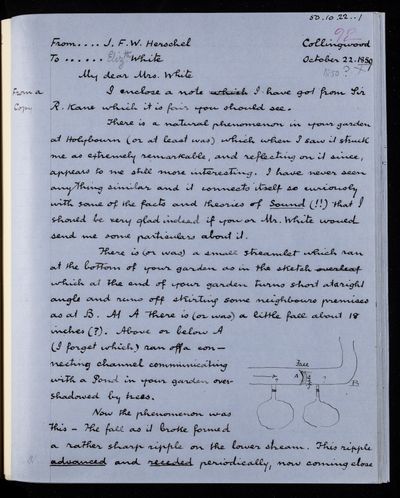 50.10.22..1
From.... J. F. W. Herschel
To ...... Elizth White
98
Collingwood
October 22. 1850
1850 ?
My dear Mrs. White
From a
Copy
I enclose a note which I have got from Sir
R. Kane which it is fair you should see.
There is a natural phenomenon in your garden
at Holybourn (or at least was) which when I saw it struck
me as extremely remarkable, and reflecting on it since,
appears to me still more interesting. I have never seen
anything similar and it connects itself so curiously
with some of the facts and theories of Sound (!!) that I
should be very glad indeed if you or Mr. White would
send me some particulars about it.
There is (or was) a small streamlet which ran
at the bottom of your garden as in the sketch overleaf
which at the end of your garden turns short at a right
angle and runs off skirting some neighbours premises
as at B. At A there is (or was) a little fall about 18
inches (?). Above or below A
(I forget which) ran off a con-
necting channel communicating
with a Pond in your garden over-
shadowed by trees.
Fall
A
B
?
?
Now the phenomenon was
this - The fall as it broke formed
a rather sharp ripple on the lower stream. This ripple
advanced and receded periodically, now coming close